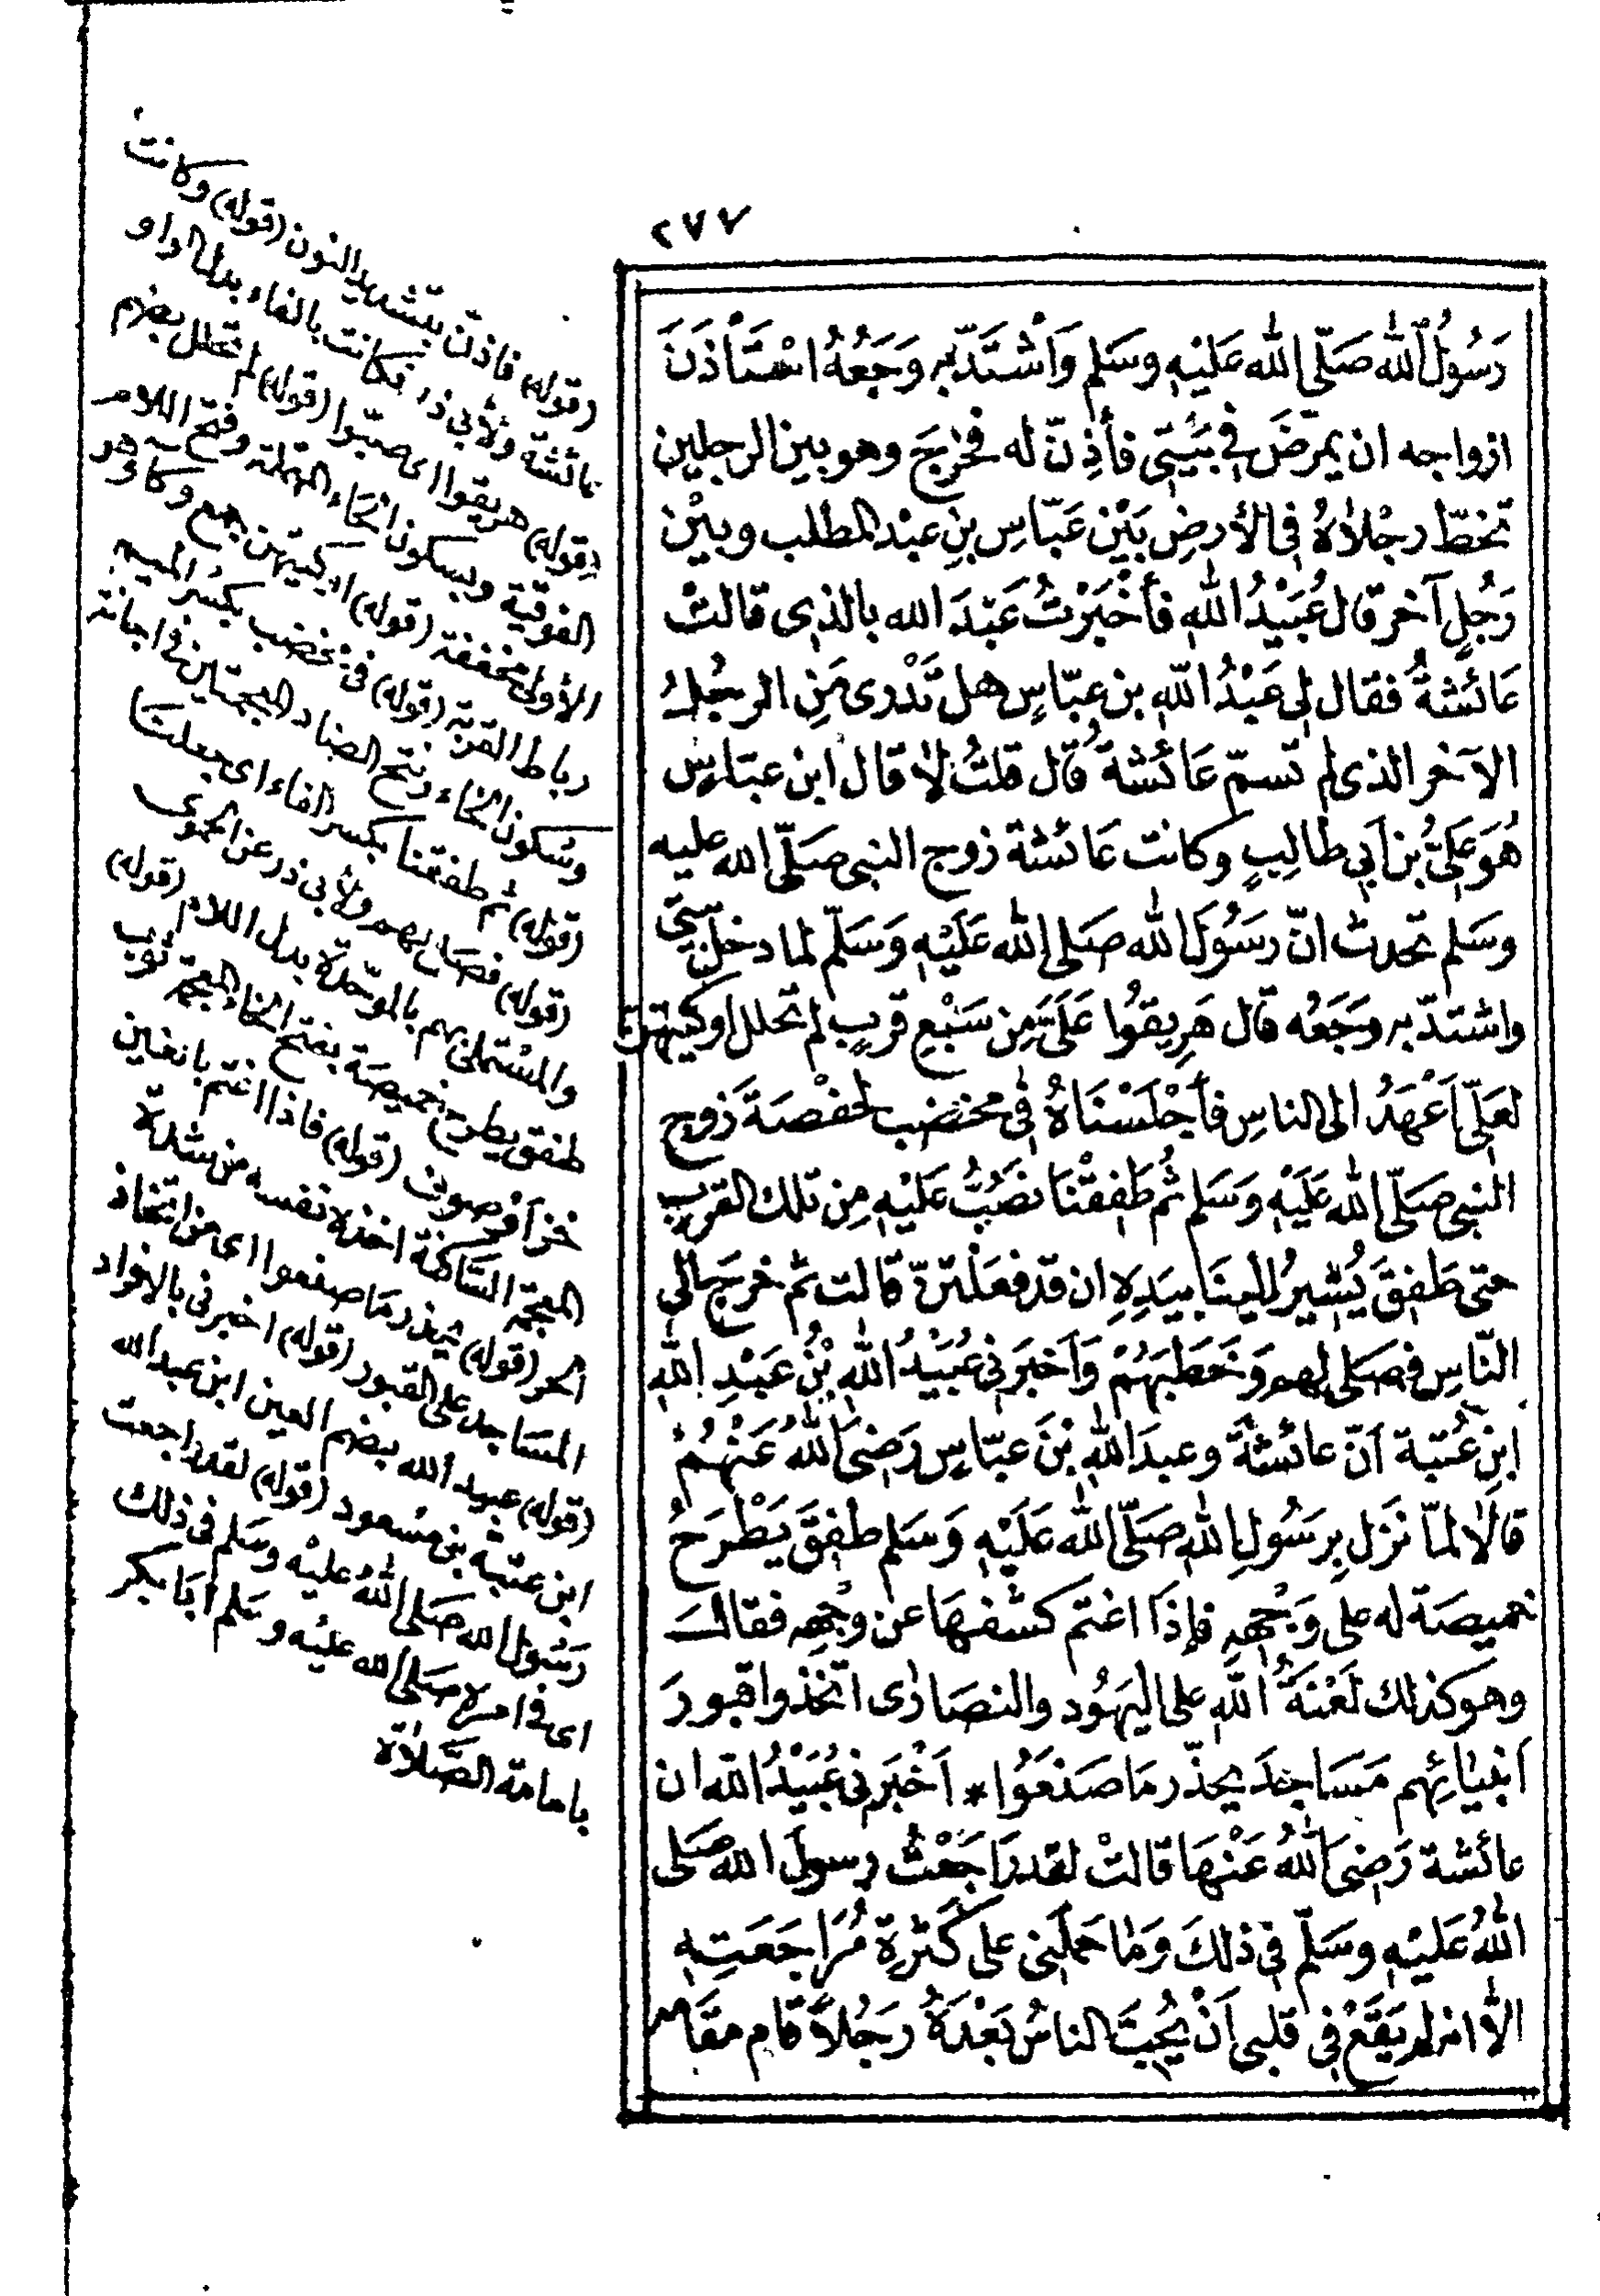 ٢٧٧
رَسُولُ اللهِ صَلّى الله عَلَيْهِ وسَلم وَاشْتَدَّ بِهِ وَجَعُهُ اسْتَأذَنَ
ازواجه ان يمرّضَ في بَيْتِى فأذِنّ له فخرَجَ وهو بين الرجلين
تخطّ رجْلاهُ في الأرضِ بَيْن عَبّاسِ بنِ عبْد المطلب وبيْن
رَجُلٍ آخر قال عُبَيْدُ اللهِ فأخْبَرْتُ عَبْدَ الله بالذى قالتْ
عَائشةُ فقال لى عَبْدُ اللهِ بن عبّاسٍ هل تَدْرى مَنِ الرجُلُ
الآخر الذى لم تسمّ عَائشةُ قال قلتُ لا قال ابن عبّاس
هُوَ عَلىُّ بن اَبي طالِبٍ وكانت عَائشة زوج النبى صَلّى الله عليه
وسَلم تحدث انّ رسُولَ الله صَلى الله عَلَيْهِ وَسَلّم لما دخل بيتى
واشتدّ به وجَعُه قال هَرِيقُوا عَلَىَّ مِن سَبْعِ قربٍ لم تحلل اوكيتهنّ
لعَلّى اَعْهَدُ الى الناسِ فأجْلَسْنَاهُ في مخضب لحفْصَة زوج
النبى صَلّى الله عَلَيْهِ وَسَلم ثم طَفِقْنَا نصُبُّ عَلَيْهِ مِن تلك القرب
حتى طَفِقَ يُشيرُ الينَا بِيَدِهِ ان قد فعَلْتنّ قالت ثم خرجَ الى
النّاسِ فصَلى لهم وَخَطَبَهُمْ وَاَخبَرَنى عُبَيْدُ اللهِ بْنُ عَبْدِ اللهِ
ابنِ عُتبة اَنّ عائشةَ وعبدَ اللهِ بْنَ عبّاسٍ رَضِىَ اللهُ عَنْهُمْ
قالا لمّا نزل بِرسُولِ اللهِ صَلّى الله عَلَيْهِ وَسَلم طفِقَ يَطْرَحُ
خميصَة له على وَجْههِ فإذَا اغتم كشفهَا عن وجْهِه فقالَ
وهو كذلك لَعْنَةُ اللهِ على اليهُود والنصَارى اتخذوا قبورَ
اَنبيَائِهم مَسَاجدَ يحذّر مَا صَنعُوا * اَخْبَرنى عُبَيْدُ الله ان
عائشة رَضِىَ اللهُ عَنْهَا قالتْ لقد رَاجَعْتُ رسولَ الله صَلى
اللهُ عَليْهِ وسَلّم فى ذلكَ وَمَا حَملَنِى على كَثْرةِ مُرَاجَعَتِهِ
الاّ انه لم يَقَعْ فِى قلبى اَنْ يُحِبَّ الناسُ بَعْدَهُ رَجُلاً قام مقَامه
(قوله) فاذنّ بتشديد النون (قوله) وكانت
عائشة ولأبي ذر فكانت بالفاء بدل الواو
(قوله) هريقوا اى صبّوا (قوله) لم تحلل بضم
الفوقية وبسكون الحَاء المهملة وفتح اللام
الأولى مخففة (قوله) اوكيتهن جمع وكاء وهو
رباط القربة (قوله) في مخضب بكسر الميم
وسُكون الخاء وفتح الضاد المعجمتين اى اجانة
(قوله) ثم طفقنا بكسر الفاء اى جعلنَا
(قوله) فصَلى بهم ولأبي ذر عن الحموى
والمسْتملى بهم بالموحّدة بدل اللام (قوله)
طفق يطرح خميصَة بفتح الخاء المعجمة ثوب
خز اَو صوف (قوله) فاذا اغتم بالغين
المعجمة السَّاكنة اخذه نفسه من شدة
الحر (قوله) يحذر مَا صنعوا اى من اتخاذ
المسَاجد على القبور (قوله) اخبرنى بالافراد
(قوله) عبيد الله بضم العين ابن عبد الله
ابن عتبة بن مسْعود (قوله) لقد راجعت
رَسُول الله صَلى اللهُ عليْه وسَلم فى ذلك
اى فى امره صَلى الله عليْه وسَلم ابَا بكر
بامامة الصَّلاة